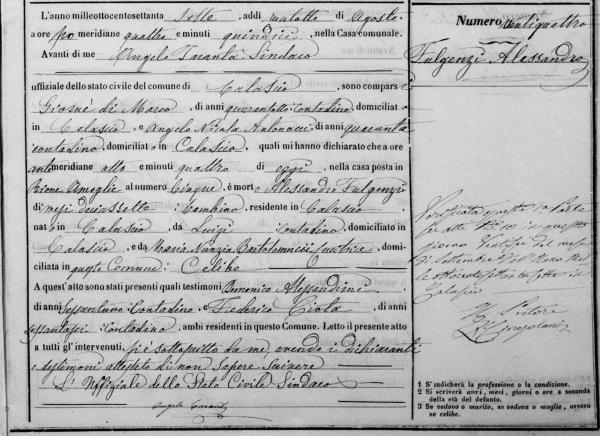 L'anno milleottocentosettanta sette, addì ventotto di Agosto
a ore po meridiane quattro e minuti quindici, nella Casa comunale.
Avanti di me Angelo Taranta Sindaco
uffiziale dello stato civile del comune di Calascio, sono comparsi
Giosuè di Marco, di anni quarantotto : Contadino, domiciliato
in Calascio, e Angelo Nicola Antonacci, di anni quaranta
contadino, domiciliato in Calascio, quali mi hanno dichiarato che a ore
antimeridiane otto e minuti quattro di oggi, nella casa posta in
Rione al numero Cinque, è morto Alessandro Fulgenzi
di mesi deciassetto : bambino, residente in Calascio
nato in Calascio, da Luigi : Contadino, domiciliato in
Calascio, e da Maria Nunzia Bartolomucci, domi-
ciliata in questo Comune : Celibe
A quest'atto sono stati presenti quali testimoni Domenico Alessandrini
di anni : Contadino e Federico Ciota, di anni
sessantasei : Contadino, ambi residenti in questo Comune. Letto il presente atto
a tutti gl'intervenuti, si è sottoscritto da me avendo i dichiaranti
e testimoni attestato di non sapere scrivere
L'Uffiziale dello Stato Civile Sindaco
Angelo Taranta
Numero ventiquattro
Fulgenzi Alessandro
Verificata questa parte
per atti in questo
giorno del mese
di Settembre dell'anno mil
le ottocentosettantotto in
Calascio
Il Pretore
1 S'indicherà la professione o la condizione.
2 Si scriverà anni, mesi, giorni o ore a seconda
della età del defunto.
3 Se vedovo o marito, se vedova o moglie, ovvero
se celibe.